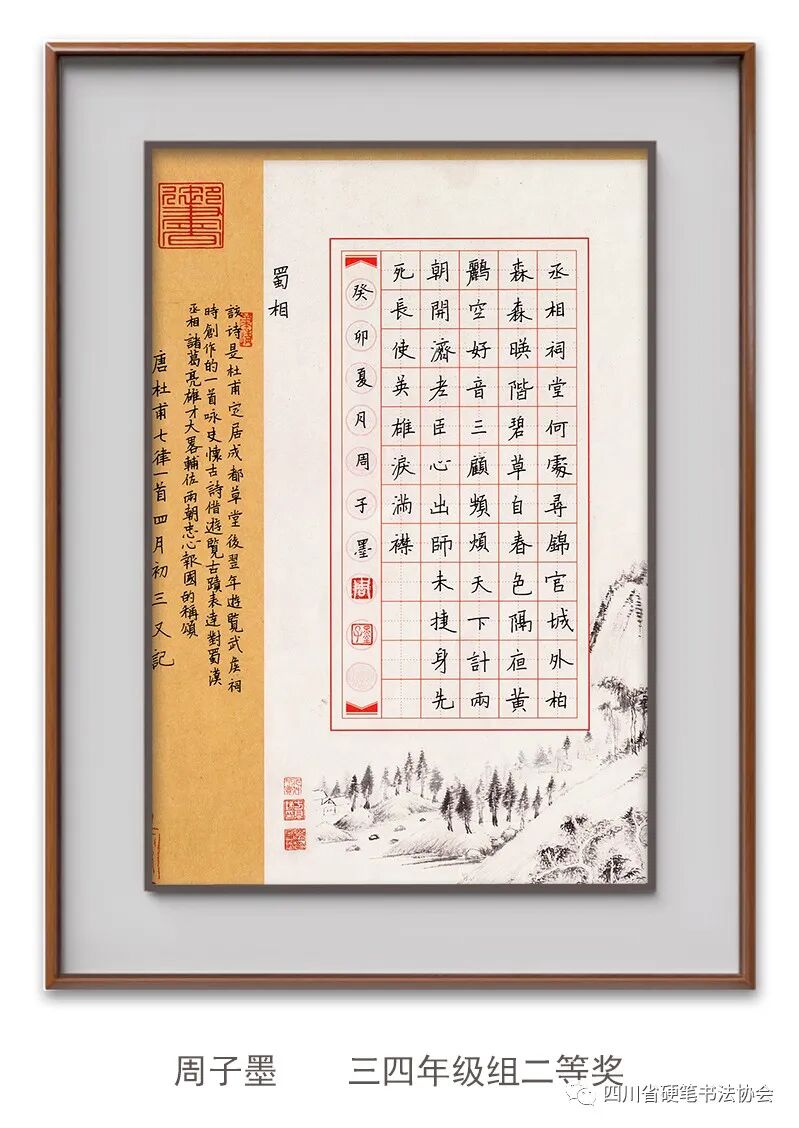 丞相祠堂何處尋錦官城外柏
森森暎階碧草自春色隔黃
鸝空好音三顧頻煩天下計兩
朝開濟老臣心出師未捷身先
死長使英雄淚滿襟
癸卯夏月周子墨
蜀相
該诗是杜甫定居成都草堂後翌年遊覽武侯祠
時創作的一首咏史懷古詩借遊覽古蹟表達對蜀漢
丞相諸葛亮雄才大畧輔佐兩朝忠心報國的稱頌
唐杜甫七律一首四月初三又記
周子墨 三四年级组二等奖
四川省硬笔书法协会